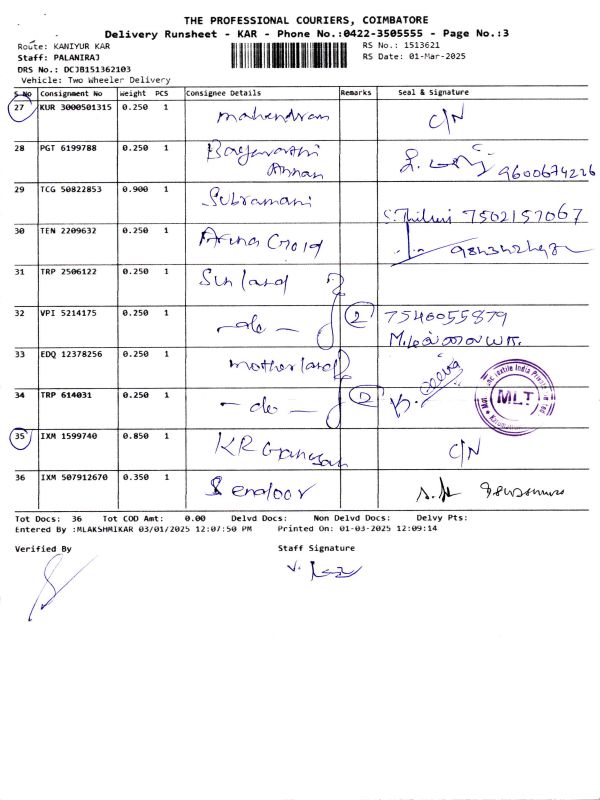 THE PROFESSIONAL COURIERS, COIMBATORE
Delivery Runsheet - KAR - Phone No.:0422-3505555 - Page No.:3
Route: KANIYUR KAR
RS No.: 1513621
Staff: PALANIRAJ
RS Date: 01-Mar-2025
DRS No.: DCJB151362103
Vehicle: Two Wheeler Delivery
S No Consignment No Weight PCS Consignee Details Remarks Seal & Signature
27 KUR 3000501315 0.250 1 Mahendran C/N
28 PGT 6199788 0.250 1 Annan 9600674226
29 TCG 50822853 0.900 1 Subramani 7502157067
30 TEN 2209632 0.250 1
31 TRP 2506122 0.250 1 Sun land
32 VPI 5214175 0.250 1 -do- 2 7540055879
33 EDQ 12378256 0.250 1 motherland
34 TRP 614031 0.250 1 -do- 2
MLT
35 IXM 1599740 0.850 1 KR Ganesan C/N
36 IXM 507912670 0.350 1 Sendoor
Tot Docs: 36 Tot COD Amt: 0.00 Delvd Docs: Non Delvd Docs: Delvy Pts:
Entered By :MLAKSHMIKAR 03/01/2025 12:07:50 PM Printed On: 01-03-2025 12:09:14
Verified By
Staff Signature